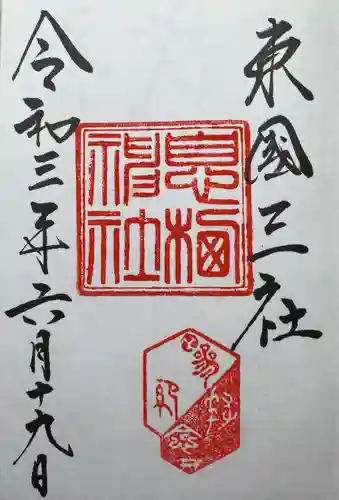 東國三社
息栖神社
令和三年六月十九日